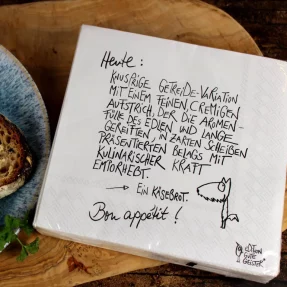 Heute:
KNUSPRIGE GETREIDE-VARIATION
MIT EINEM FEINEN, CREMIGEN
AUFSTRICH, DER DIE AROMEN-
FÜLLE DES EDLEN UND LANGE
GEREIFTEN, IN ZARTEN SCHEIBEN
PRÄSENTIERTEN BELAGS MIT
KULINARISCHER KRAFT
EMPORHEBT.
→ EIN KÄSEBROT.
Bon appétit!
EDITION
GUTE
GEISTER